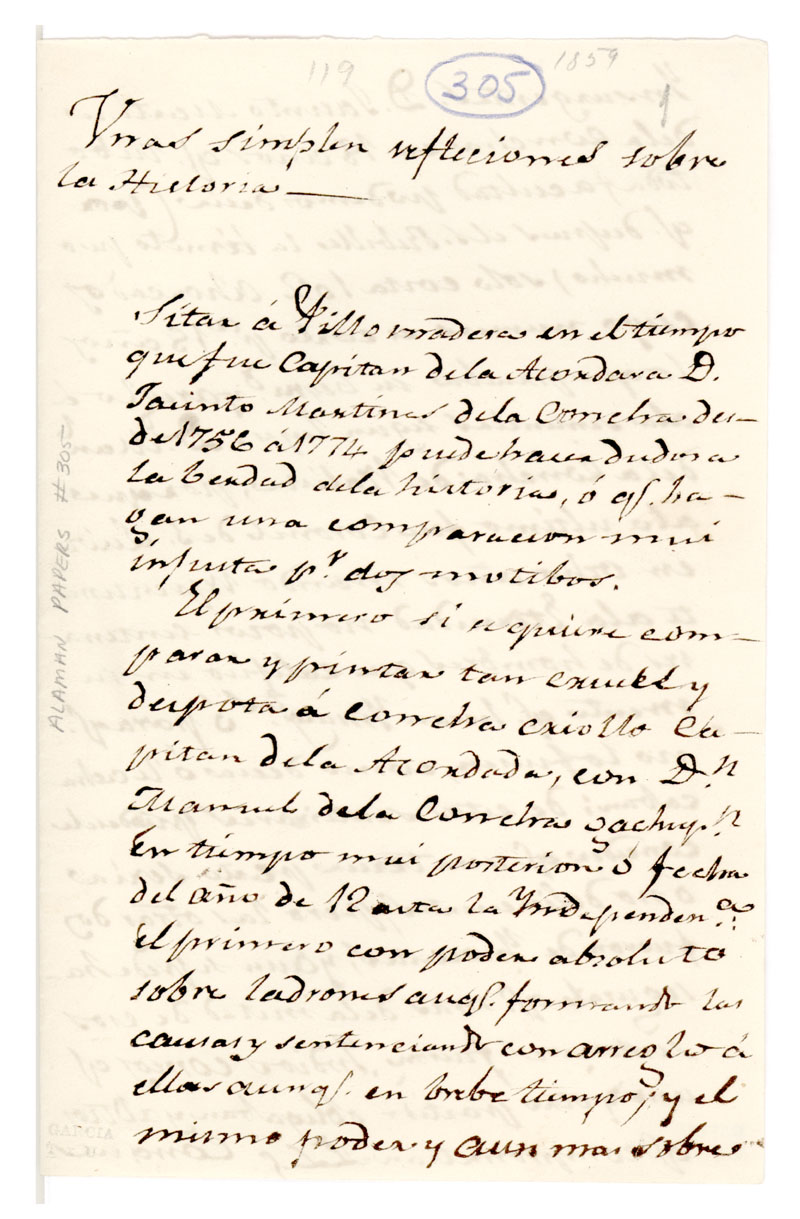 119
305
1859
1
Unas simples reflecciones sobre
la Historia
Sitar á Villa madera en el tiempo
que fue Capitan dela Acordara D.
Jacinto Martines dela Concha des-
de 1756 á 1774 puede hacer dudar a
la berdad dela historia, ó qe. ha-
gan una comparacion mui
injusta pr. dos motibos.
El primero si se quiere com-
parar y pintar tan cruel y
despota á Concha criollo Ca-
pitan dela Acordada, con Dn
Manuel dela Concha gachupn
En tiempo mui posterior ó fecha
del año de 12 asta la Independena.:
el primero con poder absoluto
sobre ladrones aunqe. formando las
causas y sentenciando con arreglo á
ellas aunqe. en brebe tiempo, y el
mismo poder y aun mas sobre
ALAMAN PAPERS #305
GARCIA